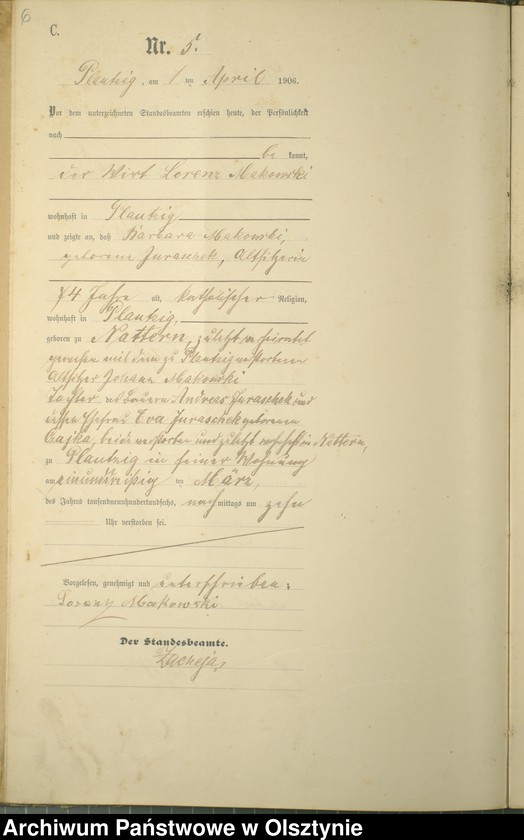 6
C.
Nr. 5.
Plautzig, am 1 ten April 1906.
Vor dem unterzeichneten Standesbeamten erschien heute, der Persönlichkeit
nach
be kannt,
der Wirt Lorenz Makowski
wohnhaft in Plautzig
und zeigte an, daß Barbara Makowski,
geborene Juraschek, Altsitzerin
74 Jahre alt, katholischer Religion,
wohnhaft in Plautzig,
geboren zu Nattern, zuletzt verheiratet
gewesen mit dem zu Plautzig verstorbenen
Altsitzer Johann Makowski
Tochter des Bauern Andreas Juraschek und
dessen Ehefrau Eva Juraschek geborene
Gajka, beide verstorben und zuletzt wohnhaft in Nattern,
zu Plautzig in seiner Wohnung
am einunddreißig ten März,
des Jahres tausendneunhundertundsechs, nachmittags um zehn
Uhr verstorben sei.
Vorgelesen, genehmigt und unterschrieben:
Lorenz Makowski
Der Standesbeamte.
Zacheja,
Archiwum Państwowe w Olsztynie